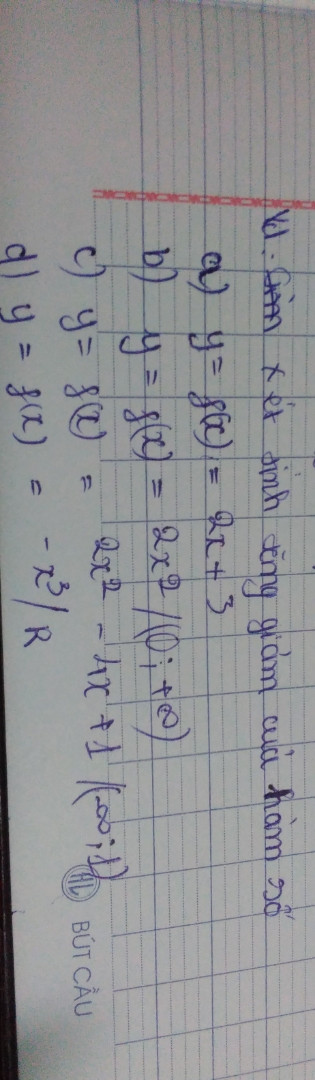 xét tính tăng giảm của hàm số
a) y = f(x) = 2x + 3
b) y = f(x) = 2x² /(0; +∞)
c) y = f(x) = 2x² - 4x + 1 /(-∞; 1)
d) y = f(x) = -x³/R
BÚT CẦU